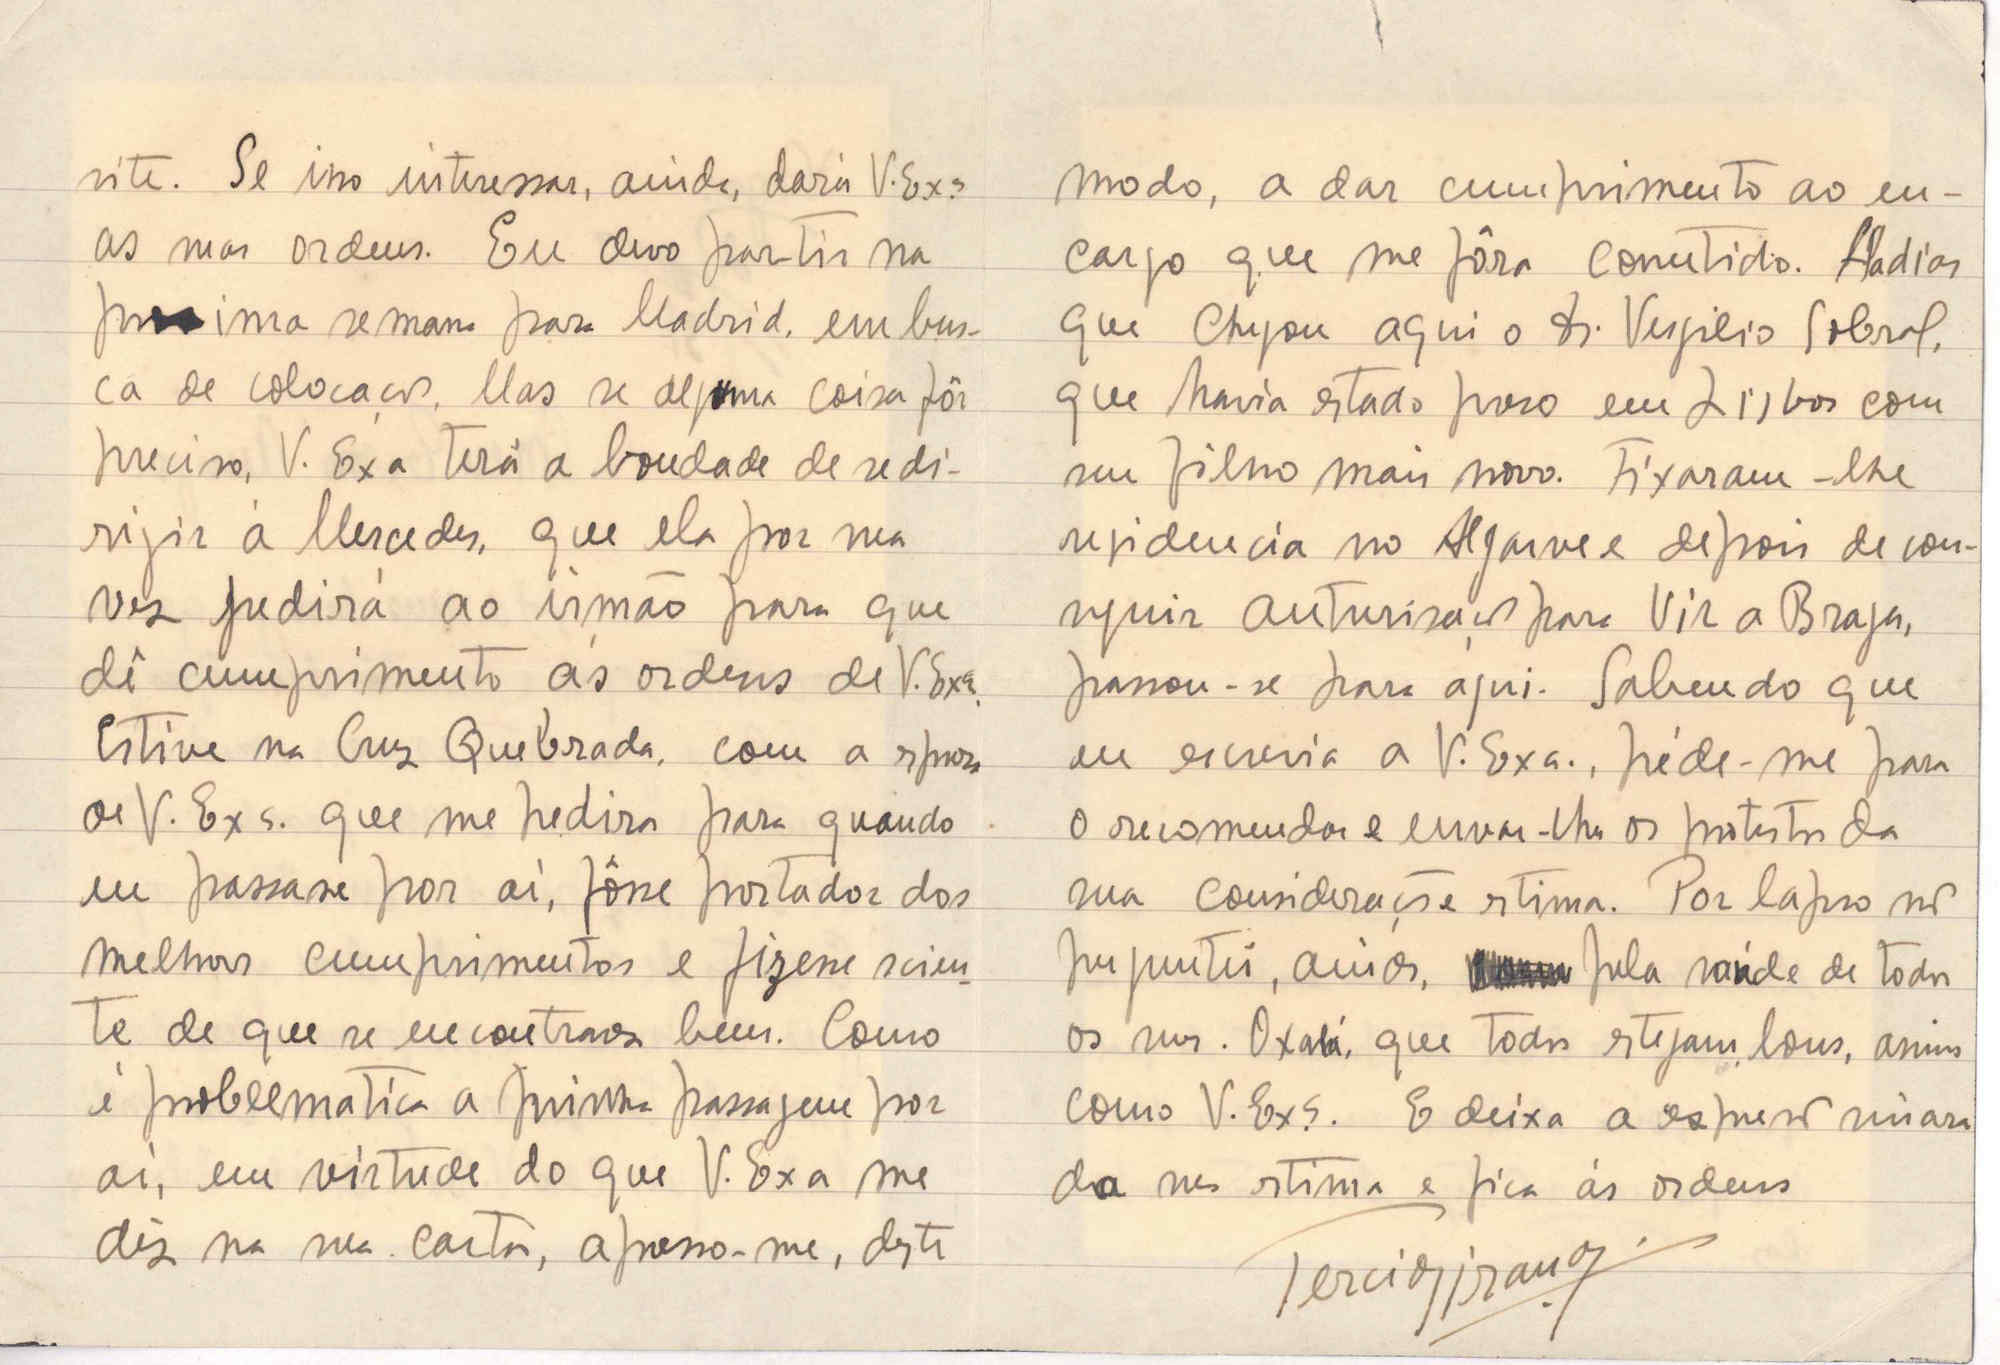 site. Se isso interessar, ainda, dará V. Exa
as suas ordens. Eu devo partir na
proxima semana para Madrid, em bus-
ca de colocação. Mas se alguma coisa fôr
preciso, V. Exa terá a bondade de se di-
rigir á Mercedes, que ela por sua
vez pedirá ao irmão para que
dê cumprimento ás ordens de V. Exa.
Estive na Cruz Quebrada, com a esposa
de V. Exa. que me pedira para quando
eu passasse por aí, fôsse portador dos
melhores cumprimentos e fizesse scien-
te de que se encontrava bem. Como
é problematica a minha passagem por
aí, em virtude do que V. Exa me
diz na sua carta, apresso-me, deste
modo, a dar cumprimento ao en-
cargo que me fôra cometido. Há dias
que chegou aqui o dr. Vergilio Sobral,
que havia estado preso em Lisboa com
seu filho mais novo. Fixaram-lhe
residencia no Algarve e depois de con-
seguir auturisação para vir a Braga,
passou-se para aqui. Sabendo que
eu escrevia a V. Exa., péde-me para
o recomendar e enviar-lhe os protestos da
sua consideração e estima. Por lapso não
perguntei, ainda, pela saúde de todos
os seus. Oxalá, que todos estejam bons, assim
como V. Exa. E deixa a expressão sincera
da sua estima e fica ás ordens